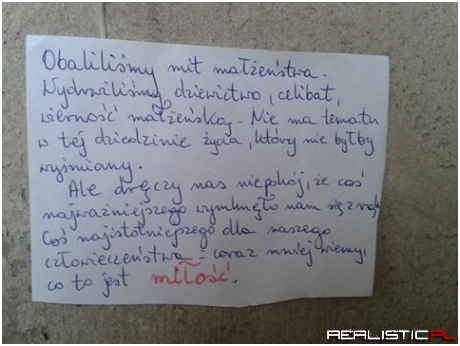 Obaliliśmy mit małżeństwa.
Wydrwiliśmy dziewictwo, celibat,
wierność małżeńską. Nie ma tematu
w tej dziedzinie życia, który nie byłby
wyśmiany.
Ale dręczy nas niepokój, że coś
najważniejszego wymknęło nam się z rąk.
Coś najistotniejszego dla naszego
człowieczeństwa - coraz mniej wiemy,
co to jest miłość.
REALISTIC.PL